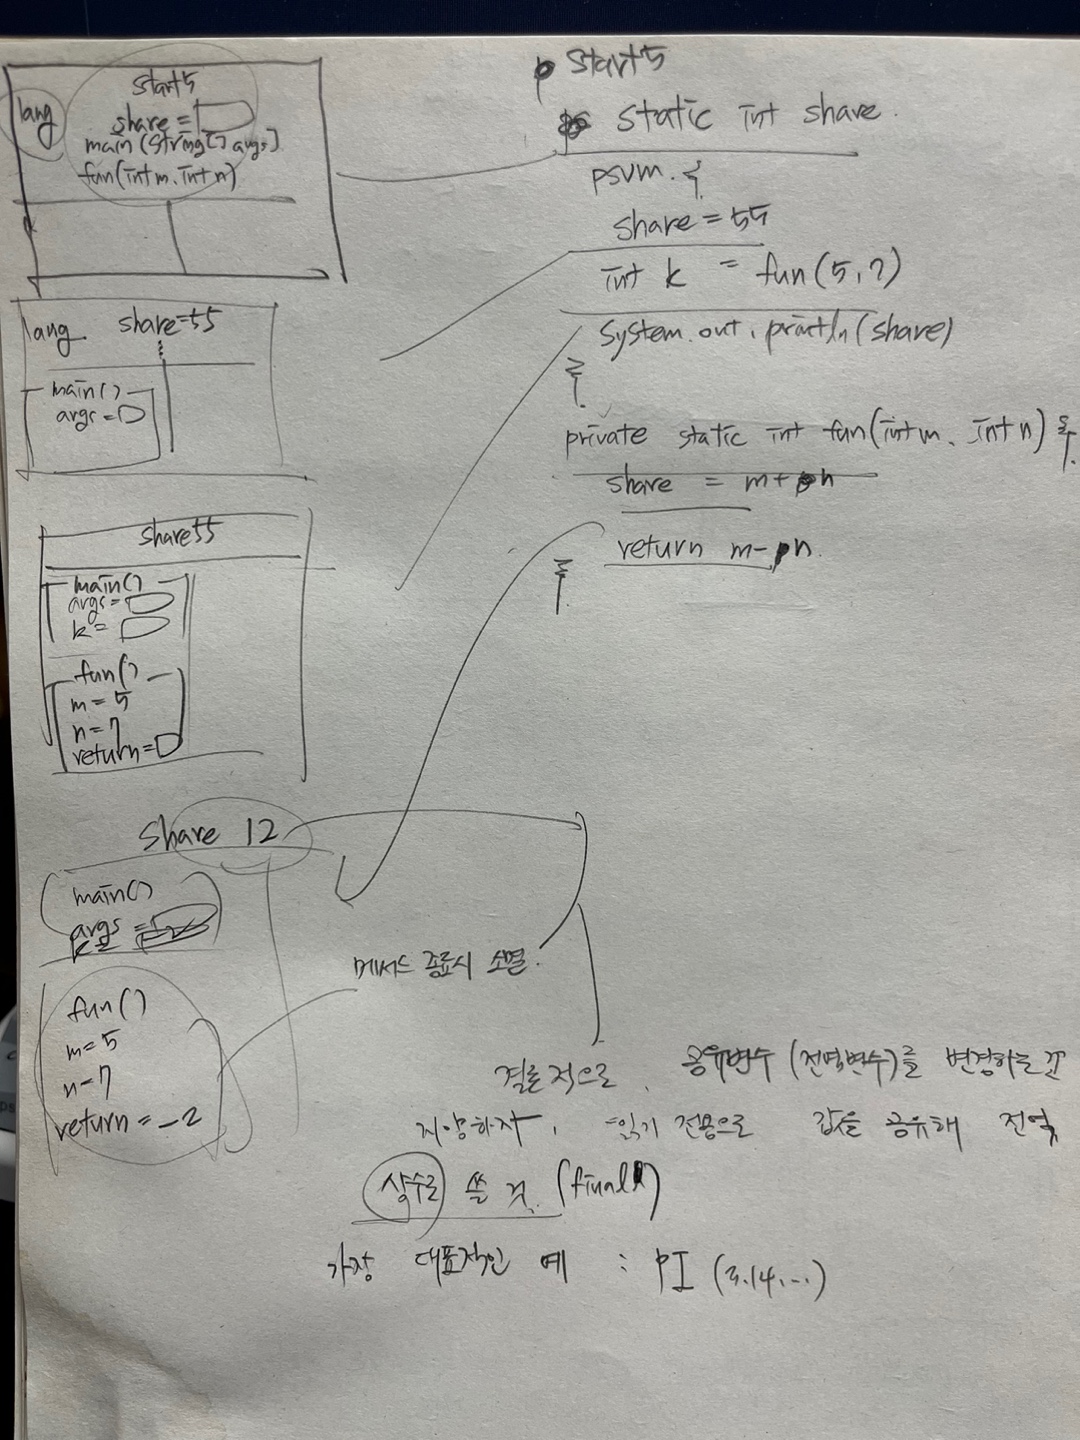 Start5
lang
share =
main (String[] args)
fun(int m, int n)
lang share=55
main()
args =
share 55
main()
args =
k =
fun()
m = 5
n = 7
return =
share 12
main()
args =
fun()
m = 5
n = 7
return = -2
Start5
static int share
psvm. {
share = 55
int k = fun(5, 7)
System.out.println(share)
}
private static int fun(int m, int n) {
share = m + n
return m - n
}
메서드 종료시 소멸.
결론적으로, 공유변수 (전역변수)를 변경하는 건
지양하자, 읽기 전용으로 값을 공유해 전역
상수로 쓸 것. (final)
가장 대표적인 예 : PI (3.14...)